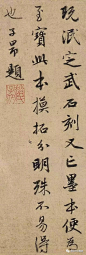 既泯定武石刻又亡墨本便為
至寶此本摸拓分明殊不易得
也子昂題